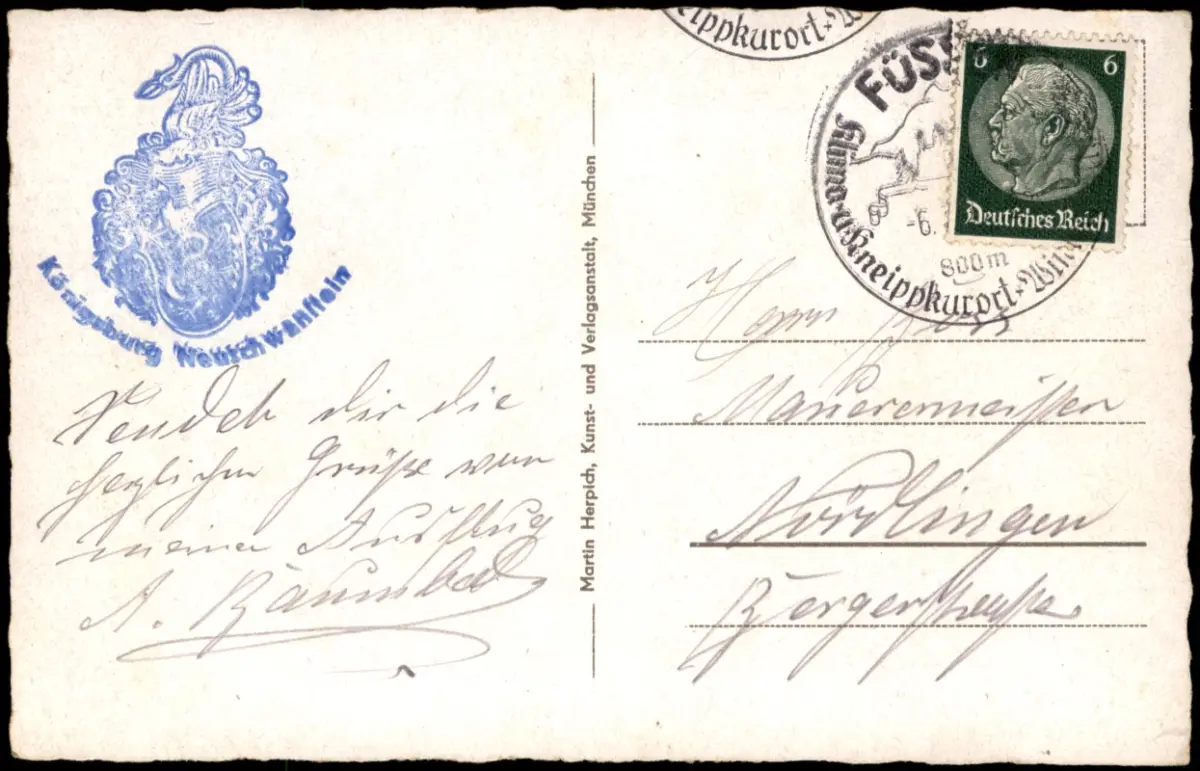 Königsburg Neuschwanstein
Sendet dir die
herzlichen Grüße von
meinem Ausflug
A. Baumbach
Martin Herpich, Kunst- und Verlagsanstalt, München
eippkurort
FÜSS
Klima- u. Kneippkurort
-6.
800m
6 6
Deutsches Reich
Herrn
Maurermeister
Nördlingen
Bergerstraße